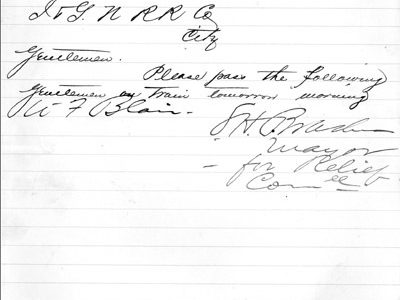 I & G. N R R Co
City
Gentlemen.
Please pass the following
Gentlemen on train tomorrow morning
W F Blair.
S. H. Brashear
Mayor
- for Relief -
Comee